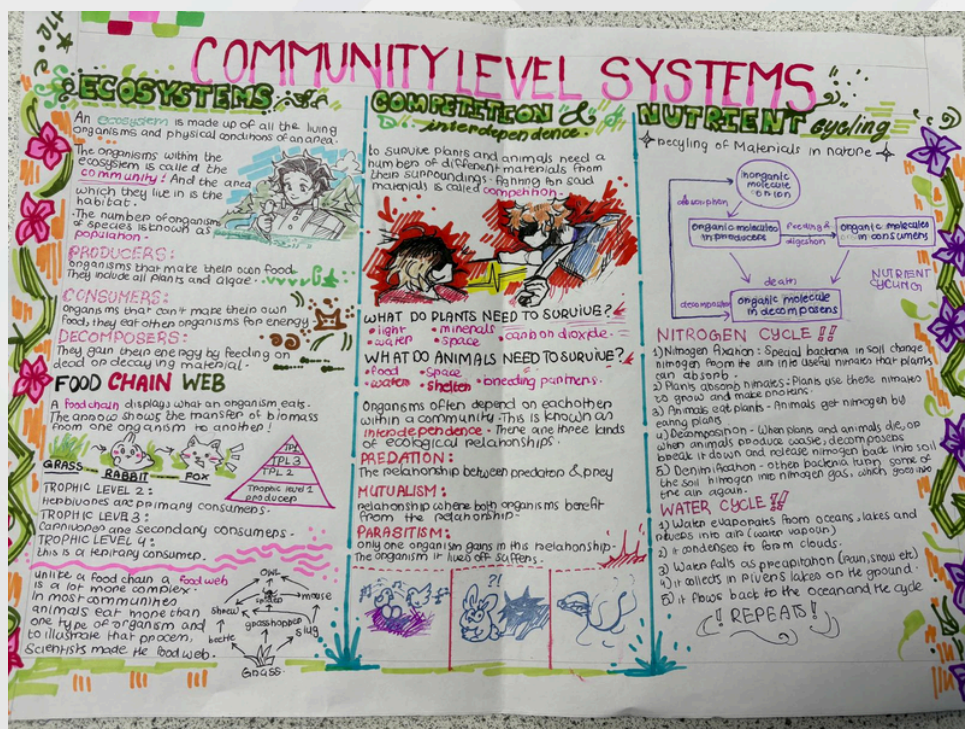 COMMUNITY LEVEL SYSTEMS
ECOSYSTEMS
An ecosystem is made up of all the living
organisms and physical conditions of an area.
The organisms within the
ecosystem is called the
community! And the area
which they live in is the
habitat.
·The number of organism
of species is known as
population.
PRODUCERS:
organisms that make their own food.
They include all plants and algae.
CONSUMERS:
organisms that can't make their own
food, they eat other organisms for energy.
DECOMPOSERS:
They gain their energy by feeding on
dead or decaying material.
FOOD CHAIN WEB
A food chain displays what an organism eats.
The arrow shows the transfer of biomass
from one organism to another!
GRASS
RABBIT
FOX
TPL 3
TPL 2
Trophic level 1
producer
TROPHIC LEVEL 2:
Herbivores are primary consumers.
TROPHIC LEVEL 3:
Carnivores are secondary consumers.
TROPHIC LEVEL 4:
this is a tertiary consumer.
unlike a food chain a food web
is a lot more complex.
In most communities
animals eat more than
one type of organism and
to illustrate that process,
Scientists made the food web.
Owl
mouse
shrew
grasshopper
beetle
slug
Grass
COMPETITION &
interdependence.
to survive plants and animals need a
numbers of different materials from
their surroundings. fighting for said
materials is called competition.
WHAT DO PLANTS NEED TO SURVIVE?
•light •minerals
•water •space •carbon dioxide.
WHAT DO ANIMALS NEED TO SURVIVE?
•food •space
•water •shelter •breeding partners.
Organisms often depend on eachother
within a community. This is known as
interdependence. There are three kinds
of ecological relationships.
PREDATION:
The relationship between predator & prey
MUTUALISM:
relationship where both organisms benefit
from the relationship.
PARASITISM:
only one organism gains in this relationship.
The organism it lives off suffers.
?!
NUTRIENT cycling
recycling of Materials in nature
inorganic
molecule
or ion
absorption
organic molecules
in producers
feeding &
digestion
organic molecules
in consumers
death
NUTRIENT
CYCLING
organic molecule
in decomposers
NITROGEN CYCLE !!
1) Nitrogen fixation: Special bacteria in soil change
nitrogen from the air into useful nitrates that plants
can absorb.
2) Plants absorb nitrates: Plants use these nitrates
to grow and make proteins
3) Animals eat plants - Animals get nitrogen by
eating plants
4) Decomposition - When plants and animals die, or
when animals produce waste, decomposers
break it down and release nitrogen back into soil
5) Denitrification - other bacteria turn some of
the soil nitrogen into nitrogen gas, which goes into
the air again.
WATER CYCLE !!
1) Water evaporates from oceans, lakes and
rivers into air (water vapour)
2) it condenses to form clouds.
3) Water falls as precipitation (rain, snow etc)
4) it collects in rivers lakes or the ground.
5) it flows back to the ocean and the cycle
!! REPEATS!